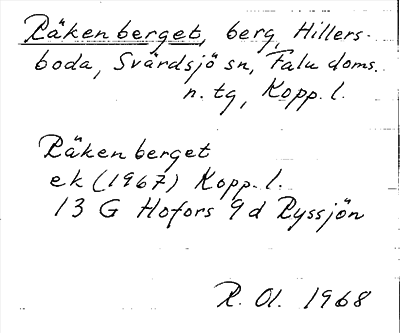 Räkenberget, berg, Hillers-
boda, Svärdsjö sn, Falu doms.
n. tg, Kopp. l.
Räkenberget
ek (1967) Kopp. l.
13 G Hofors 9d Ryssjön
R. Ol. 1968